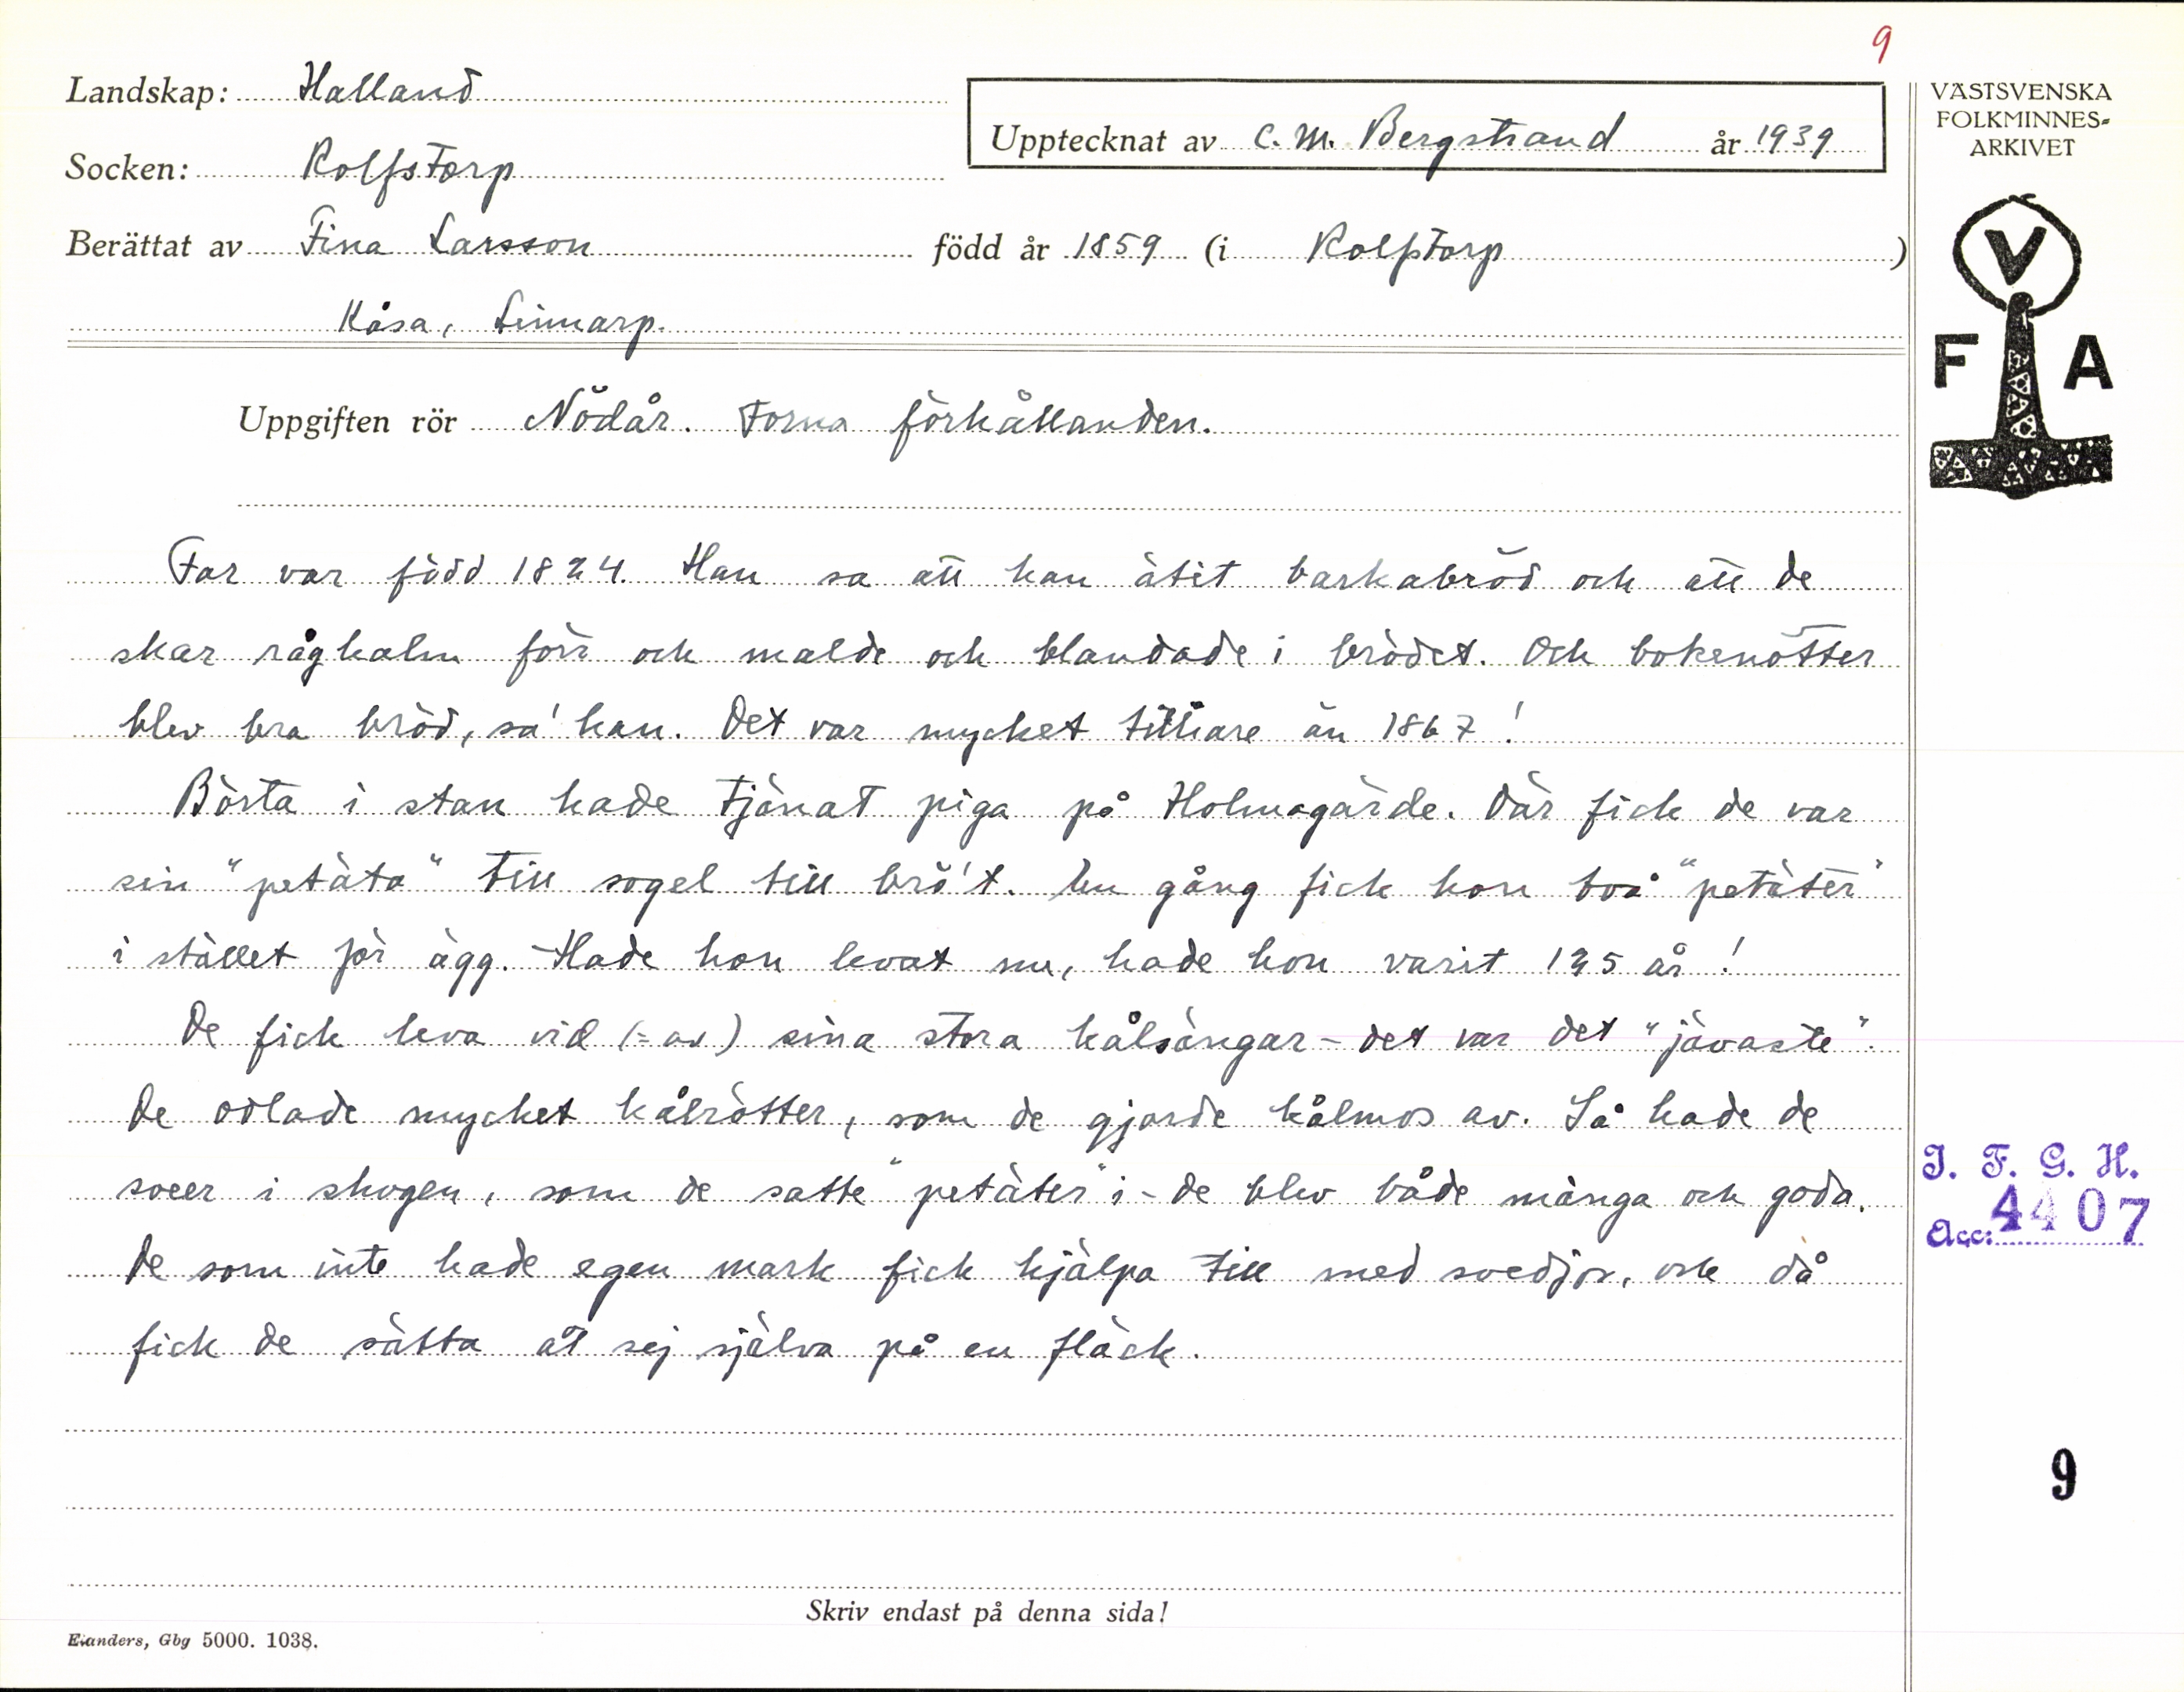 9
Landskap: Halland
Upptecknat av C. M. Bergstrand år 1939
Socken: Rolfstorp
Berättat av Fina Larsson född år 1859 (i Rolfstorp)
Kåsa, Linnarp.
Uppgiften rör Nödår. Forna förhållanden.
Far var född 1824. Han sa att han ätit barkabröd och att de
skar råghalm förr och malde och blandade i brödet. Och bokenötter
blev bra bröd, sa' han. Det var mycket tidiare än 1867!
Börta i stan hade tjänat piga på Holmagärde. Där fick de var
sin "petäta" till sogel till brö't. En gång fick hon två "petäter"
i stället för ägg. Hade hon levat nu, hade hon varit 125 år!
De fick leva vid (= av) sina stora kålsängar - det var det "jävaste".
De odlade mycket kålrötter, som de gjorde kålmos av. Så hade de
sveer i skogen, som de satte "petäter" i - de blev både många och goda.
De som inte hade egen mark fick hjälpa till med svedjor, och då
fick de sätta åt sej själva på en fläck.
Skriv endast på denna sida!
Elanders, Gbg 5000. 1038.
VÄSTSVENSKA
FOLKMINNES-
ARKIVET
V
F A
I. F. G. H.
Acc: 4407
9